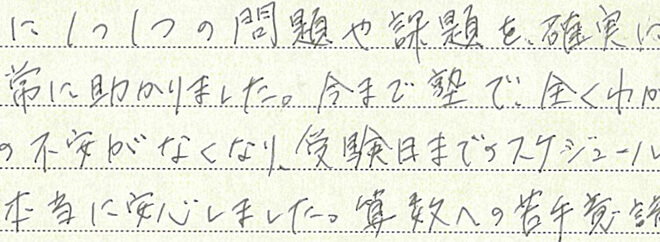 に1つ1つの問題や課題を、確実に
常に助かりました。今まで塾で、全くわか
の不安がなくなり、受験日までのスケジュール
本当に安心しました。算数への苦手意識